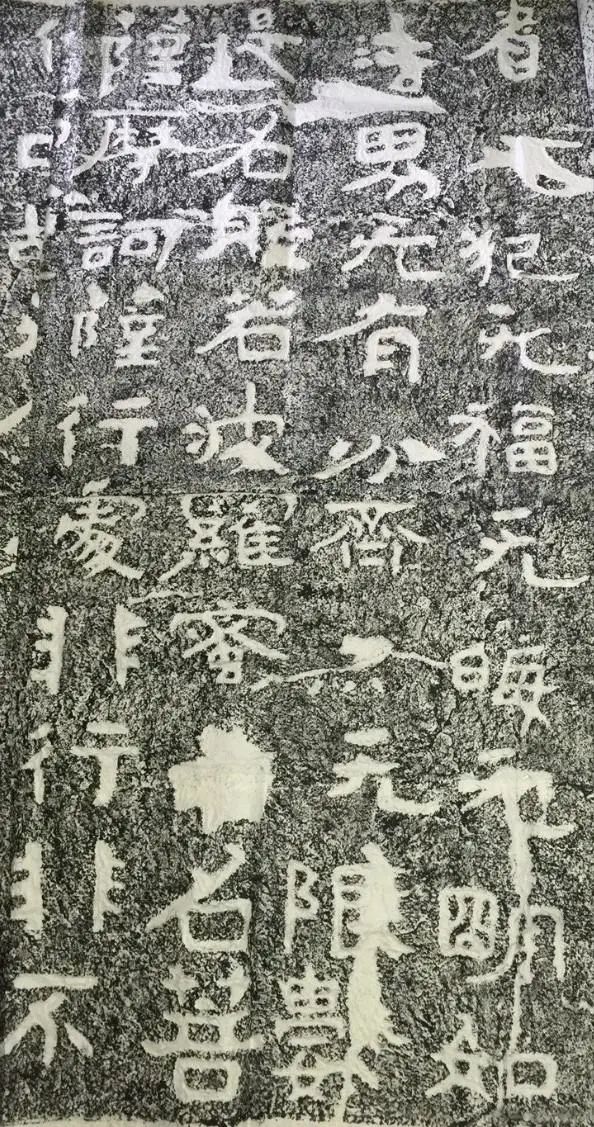 者无犯无福无晦无明如
法界无有分齊亦无限數
是名般若波羅蜜亦名菩
薩摩訶薩行處非行非不